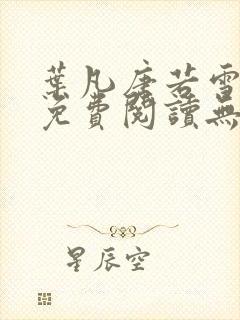 葉凡唐若雪
免費閱讀無
星辰空